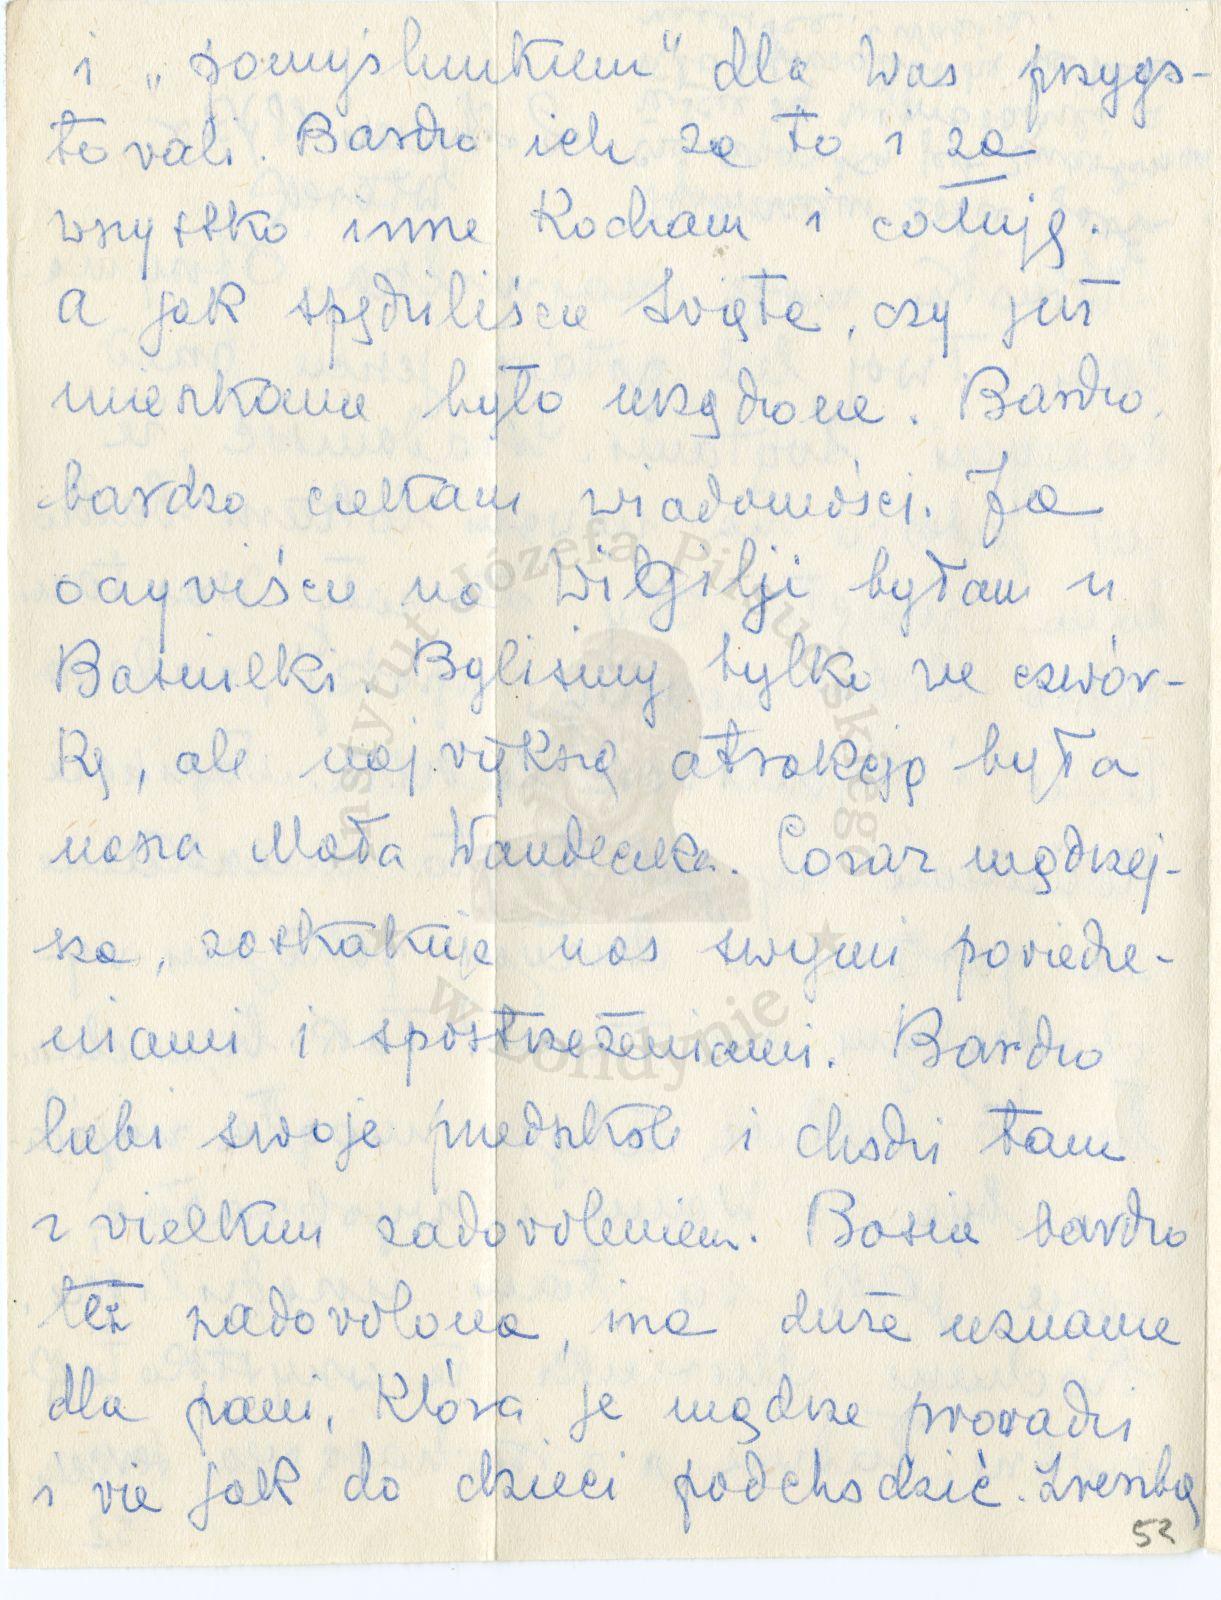 i „pomyślunkiem" dla Was przygo-
towali. Bardzo ich za to i za
wszystko inne kocham i całuję.
A jak spędziliście Święta, czy już
mieszkanie było urządzone. Bardzo,
bardzo czekam wiadomości. Ja
oczywiście na Wilgilji byłam u
Basieńki. Byliśmy tylko we czwór-
kę, ale największą atrakcją była
nasza Mała Wandeczka. Coraz mądrzej-
sza, zaskakuje nas swymi powiedze-
niami i spostrzeżeniami. Bardzo
lubi swoje przedszkole i chodzi tam
z wielkim zadowoleniem. Basia bardzo
też zadowolona, ma duże uznanie
dla pani, która je mądrze prowadzi
i wie jak do dzieci podchodzić. Zresztą
52
Instytut Józefa Piłsudskiego
w Londynie